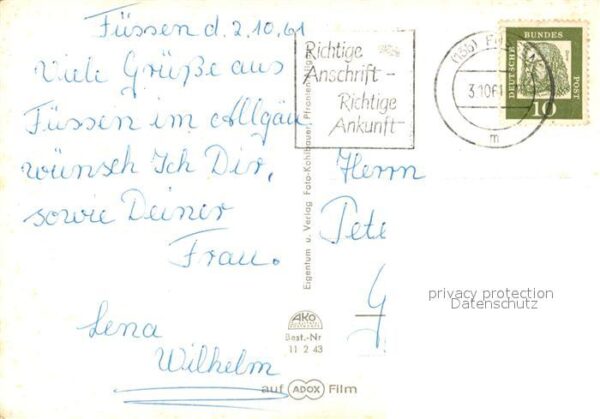 Füssen d. 2.10.61
Viele Grüße aus
Füssen im Allgäu
wünsch Ich Dir,
sowie Deiner
Frau.
Lena
Wilhelm
Richtige
Anschrift-
Richtige
Ankunft
3.10.61
m
DEUTSCHE BUNDES POST
10
Herrn
Pete
G
Eigentum u. Verlag Foto-Kohlbauer, Pfronten
AKO
Best.-Nr
11 2 43
auf ADOX Film
privacy protection
Datenschutz